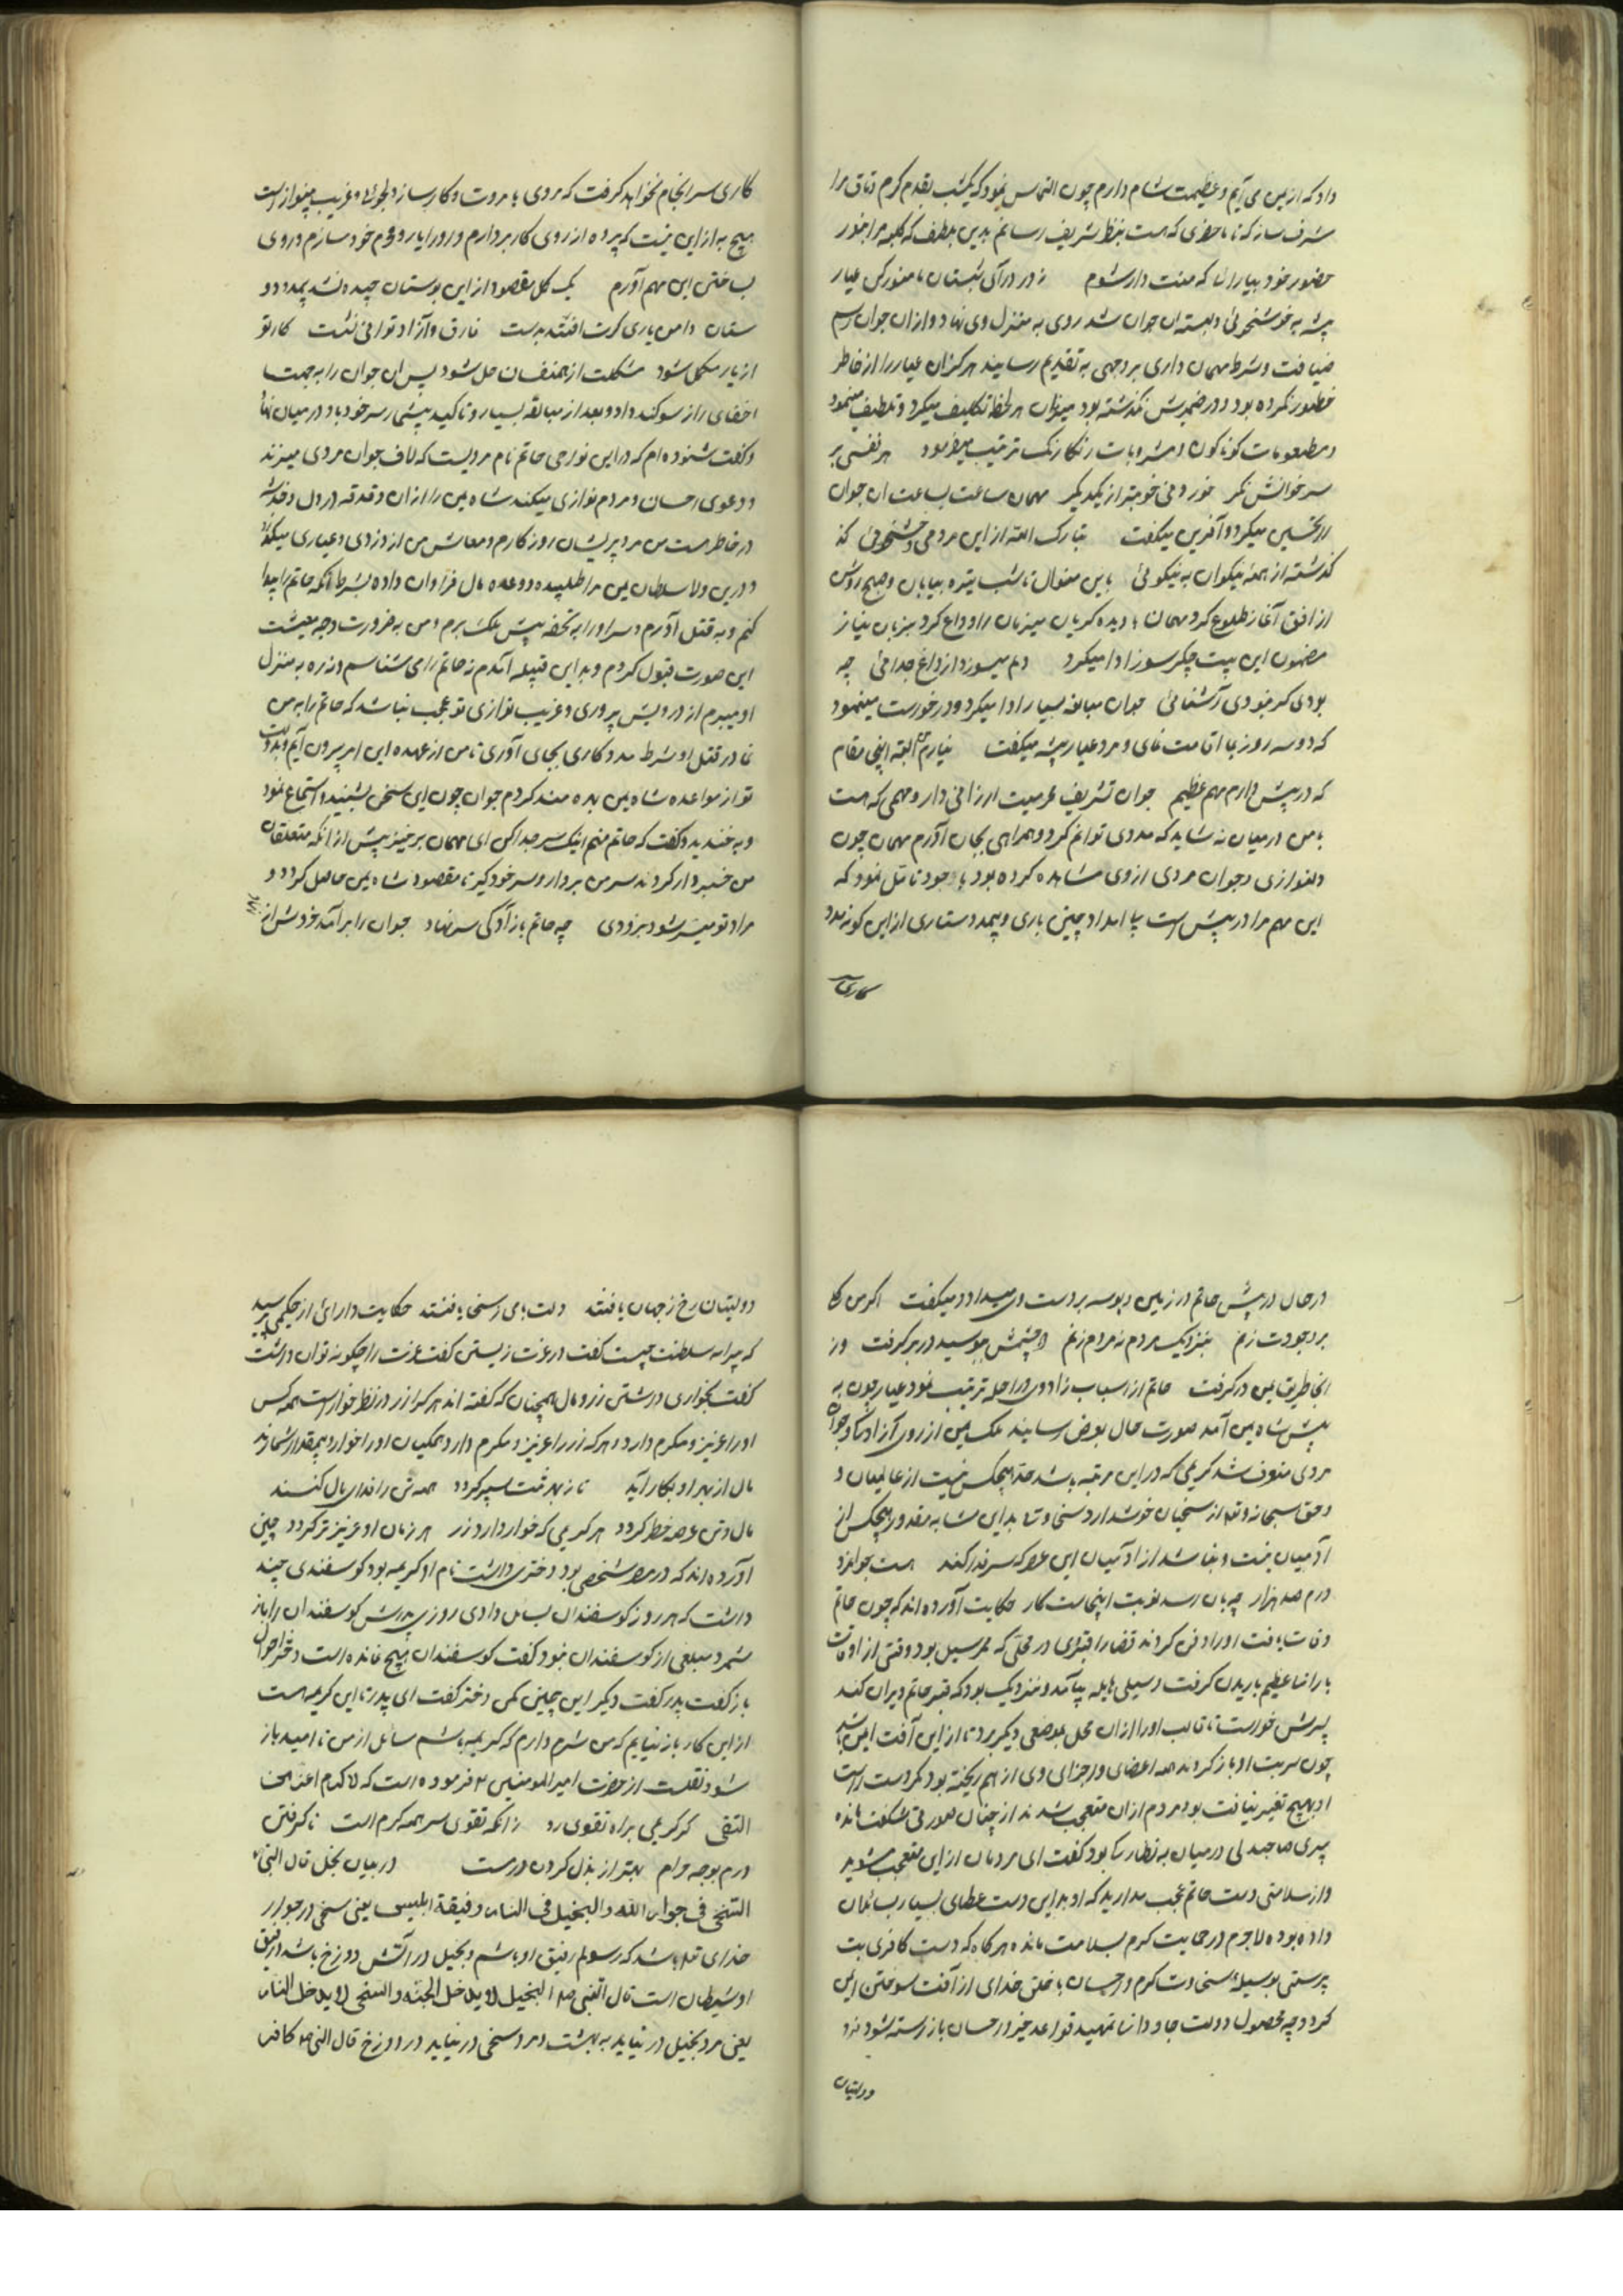 داد که از یمن می آیم و عظیمت شام دارم جوان التماس نمود که یکشب بقدم کرم وثاق مرا
مشرف ساز که تا ما حضری که هست بنظر شریف رسانم بدین لطف که کلبه مرا بنور
حضور خود بیارائی که منت دار شوم ز در درآی شبستان ما منور کن عیار
پیشه به خوشخوئی دلبسته ان جوان شد روی به منزل وی نهاد و ازان جوان رسم
ضیافت و شرط مهمان داری بر وجهی به تقدیم رسانید هرگز ان عیار را از خاطر
خطور نکرده بود و در ضمیرش نگذشته بود میزبان هر لحظه تکلیف میکرد و تلطیف مینمود
و مطعومات کوناکون و مشروبات رنکارنک ترتیب میفرمود هر نفسی بر
سر خوانش نکر خوردنی خوبتر از یکدیکر مهمان ساعت بساعت ان جوان
را تحسین میکرد و آفرین میکفت تبارک الله از این مردمی و خوشخوئی که
کذشته از همه نیکوان به نیکوئی باین منوال تا شب تیره بپایان و صبح روشن
از افق آغاز طلوع کرد مهمان با دیده کریان میزبان را وداع کرد بزبان نیاز
مضمون این بیت جکرسوز ادا میکرد دلم میسوزد از داغ جدائی چه
بودی کر نبودی آشنائی جوان مبالغه بسیار ادا میکرد و درخواست مینمود
که دو سه روز بیا اقامت نمای و مرد عیار پیشه میکفت نیارم من البته اینجا مقام
که در پیش دارم مهم عظیم جوان تشریف محرمیت ارزانی دار و مهمی که هست
با من در میان نه شاید که مددی توانم کرد و همراهی بجای آورم مهمان چون
دلنوازی و جوان مردی از وی مشاهده کرده بود با خود تامل نمود که
این مهم مرا در پیش است بی امداد چنین یاری و بیمدد ستاری از این کونه مدد
کاری
کاری سرانجام نخواهد کرفت که مردی با مروت و کارساز و دلجوی و غریب نواز است
هیچ به از این نیست که پرده از روی کار بردارم و او را یار و محرم خود سازم و روی
بساختن این مهم آورم یک کل مقصود از این بوستان چیده نشد بیمدد دو
ستان دامن یاری کرت افتد بدست فارق و آزاد توانی نشست کار تو
از یار مکمل شود مشکلت از همنفسان حل شود پس ان جوان را به جهت
اخفای راز سوکند داد و بعد از مبالغه بسیار و تاکید بیشی سر خود باو در میان نهاد
و کفت شنوده ام که در این نواحی حاتم نام مردیست که لاف جوان مردی میزند
و دعوی احسان و مردم نوازی میکند شاه یمن را از ان دغدغه در دل و خدشه
در خاطر است من مرد پریشان روزکارم و معاش من از دزدی و عیاری میکذرد
و درین ولا سلطان یمن مرا طلبیده و وعده مال فراوان داده بشرط آنکه حاتم را پیدا
کنم و به قتل آورم و سر او را به تحفه پیش ملک برم و من به ضرورت وجه معیشت
این صورت قبول کردم و به این قبیله آمدم نه حاتم را می شناسم و نه ره به منزل
او میبرم از درویش پروری و غریب نوازی تو عجب نباشد که حاتم را به من
نما و در قتل او شرط مددکاری بجای آوری تا من از عهده این امر بیرون آیم و بدولت
تو از مواعده شاه یمن بهره مند کردم جوان چون این سخن بشنید و استماع نمود
و به خندید و کفت که حاتم منم اینک سر جدا کن ای مهمان برخیز پیش از انکه متعلقان
من خبردار کردند سر من بردار و سر خود گیر تا مقصود شاه یمن حاصل کردد و
مراد تو میسر شود بزودی چه حاتم بازادکی سر نهاد جوان را برآمد خروش از
نهاد
در حال در پیش حاتم در زمین و بوسه بر دست وی میداد و میکفت اکر من کل
بر وجودت زنم بنزدیک مردم نه مردم زنم دو چشمش ببوسید و در بر کرفت وز
انجا طریق یمن در کرفت حاتم از اسباب زاد وی و راحله ترتیب نمود عیار چون به
پیش شاه یمن آمد صورت حال بعرض رسانید ملک یمن از روی آزادگی و جوان
مردی منصف شد کریمی که در این مرتبه باشد حد هیچکس نیست از عالمیان و
و حق سبحانه و تعالی از سخیان خوشدارد سخاوت بدین مثابه مقدور هیچکس از
آدمیان نیست و نباشد از آدمیان این عمل که سر فدا کند هست جوانمرد
درم صد هزار چه بجان رسد نوبت اینجاست کار حکایت آورده اند که چون حاتم
وفات یافت او را دفن کردند قضا را قبروی در محلی که ممر سیل بود وقتی از اوقات
باران عظیم باریدن کرفت و سیلی هایله بیامد و نزدیک بود که قبر حاتم ویران کند
پسرش خواست تا قالب او را از ان محل بموضعی دیکر برد تا از این آفت ایمن باشد
چون سر تربت او باز کردند همه اعضای و اجزای وی از هم ریخته بود مکر دست راست
او هیچ تغیر نیافته بود مردم از ان متعجب شدند از چنان صورتی شکفت مانده
پیری صاحبدلی در میان به نظاره بود کفت ای مردمان از این متعجب مشوید
و از سلامتی دست حاتم عجب مدارید که او بدین دست عطای بسیار بسائلان
داده بوده لاجرم در حمایت کرم بسلامت مانده هرکاه که دست کافری بت
پرستی بوسیله سخاوت کرم و احسان با خلق خدای از آفت سوختن ایمن
کردد چه محصول دولت جاودانی تمهید قواعد خیر و احسان باز رسته شود نزد
دولتیان
دولتیان رخ ز جهان یافتند دولت باقی ز سخا یافتند حکایت دارائی از حکیمی پرسید
که پیرایه سلطنت چیست کفت در عزت زیستن کفت عزت را چکونه توان داشت
کفت بخواری داشتن زر و مال همچنان که کفته اند هر کرا زر در نظر خوار است همه کس
او را عزیز و مکرم دارد و هر که زر را عزیز و مکرم دارد همکنان او را خوار و بیمقدار شمارند
مال از بهر او بکار آید تا ز بهر تنت سپر کردد همه تن را فدای مال کنند
مال و تن عرصه خطر کردد هر کریمی که خوار دارد زر هر زمان او عزیزتر کردد چنین
آورده اند که در مصر شخصی بود دختری داشت نام او کریمه بود کوسفندی چند
داشت که هر روز کوسفندان بسائل دادی روزی پدرش کوسفندان را باز
شمرد مبلغی از کوسفندان نبود کفت کوسفندان هیچ نمانده است دختر احوال
باز کفت پدر کفت دیکر این چنین مکن دختر کفت ای پدر تا این کریمه است
از این کار باز نیایم که من شرم دارم که کریمه باشم سائل از من نا امید باز
شود نقلست از حضرت امیر المومنین ع فرموده است که لا کرم اعز من
التقی کر کریمی براه تقوی رو زانکه تقوی سر همه کرم است ناکرفتن
درم بوجه حرام بهتر از بذل کردن درست در بیان بخل قال النبی ص
السخی فی جوار الله و البخیل فی النار و رفیقه ابلیس یعنی سخی در جوار
خدای تعالی باشد که رسولم رفیق او باشم و بخیل در آتش دوزخ باشد و رفیق
او شیطان است قال النبی صلع البخیل لا یدخل الجنه و السخی لا یدخل النار
یعنی مرد بخیل در نیاید به بهشت و مرد سخی در نیاید در دوزخ قال النبی ص کافر